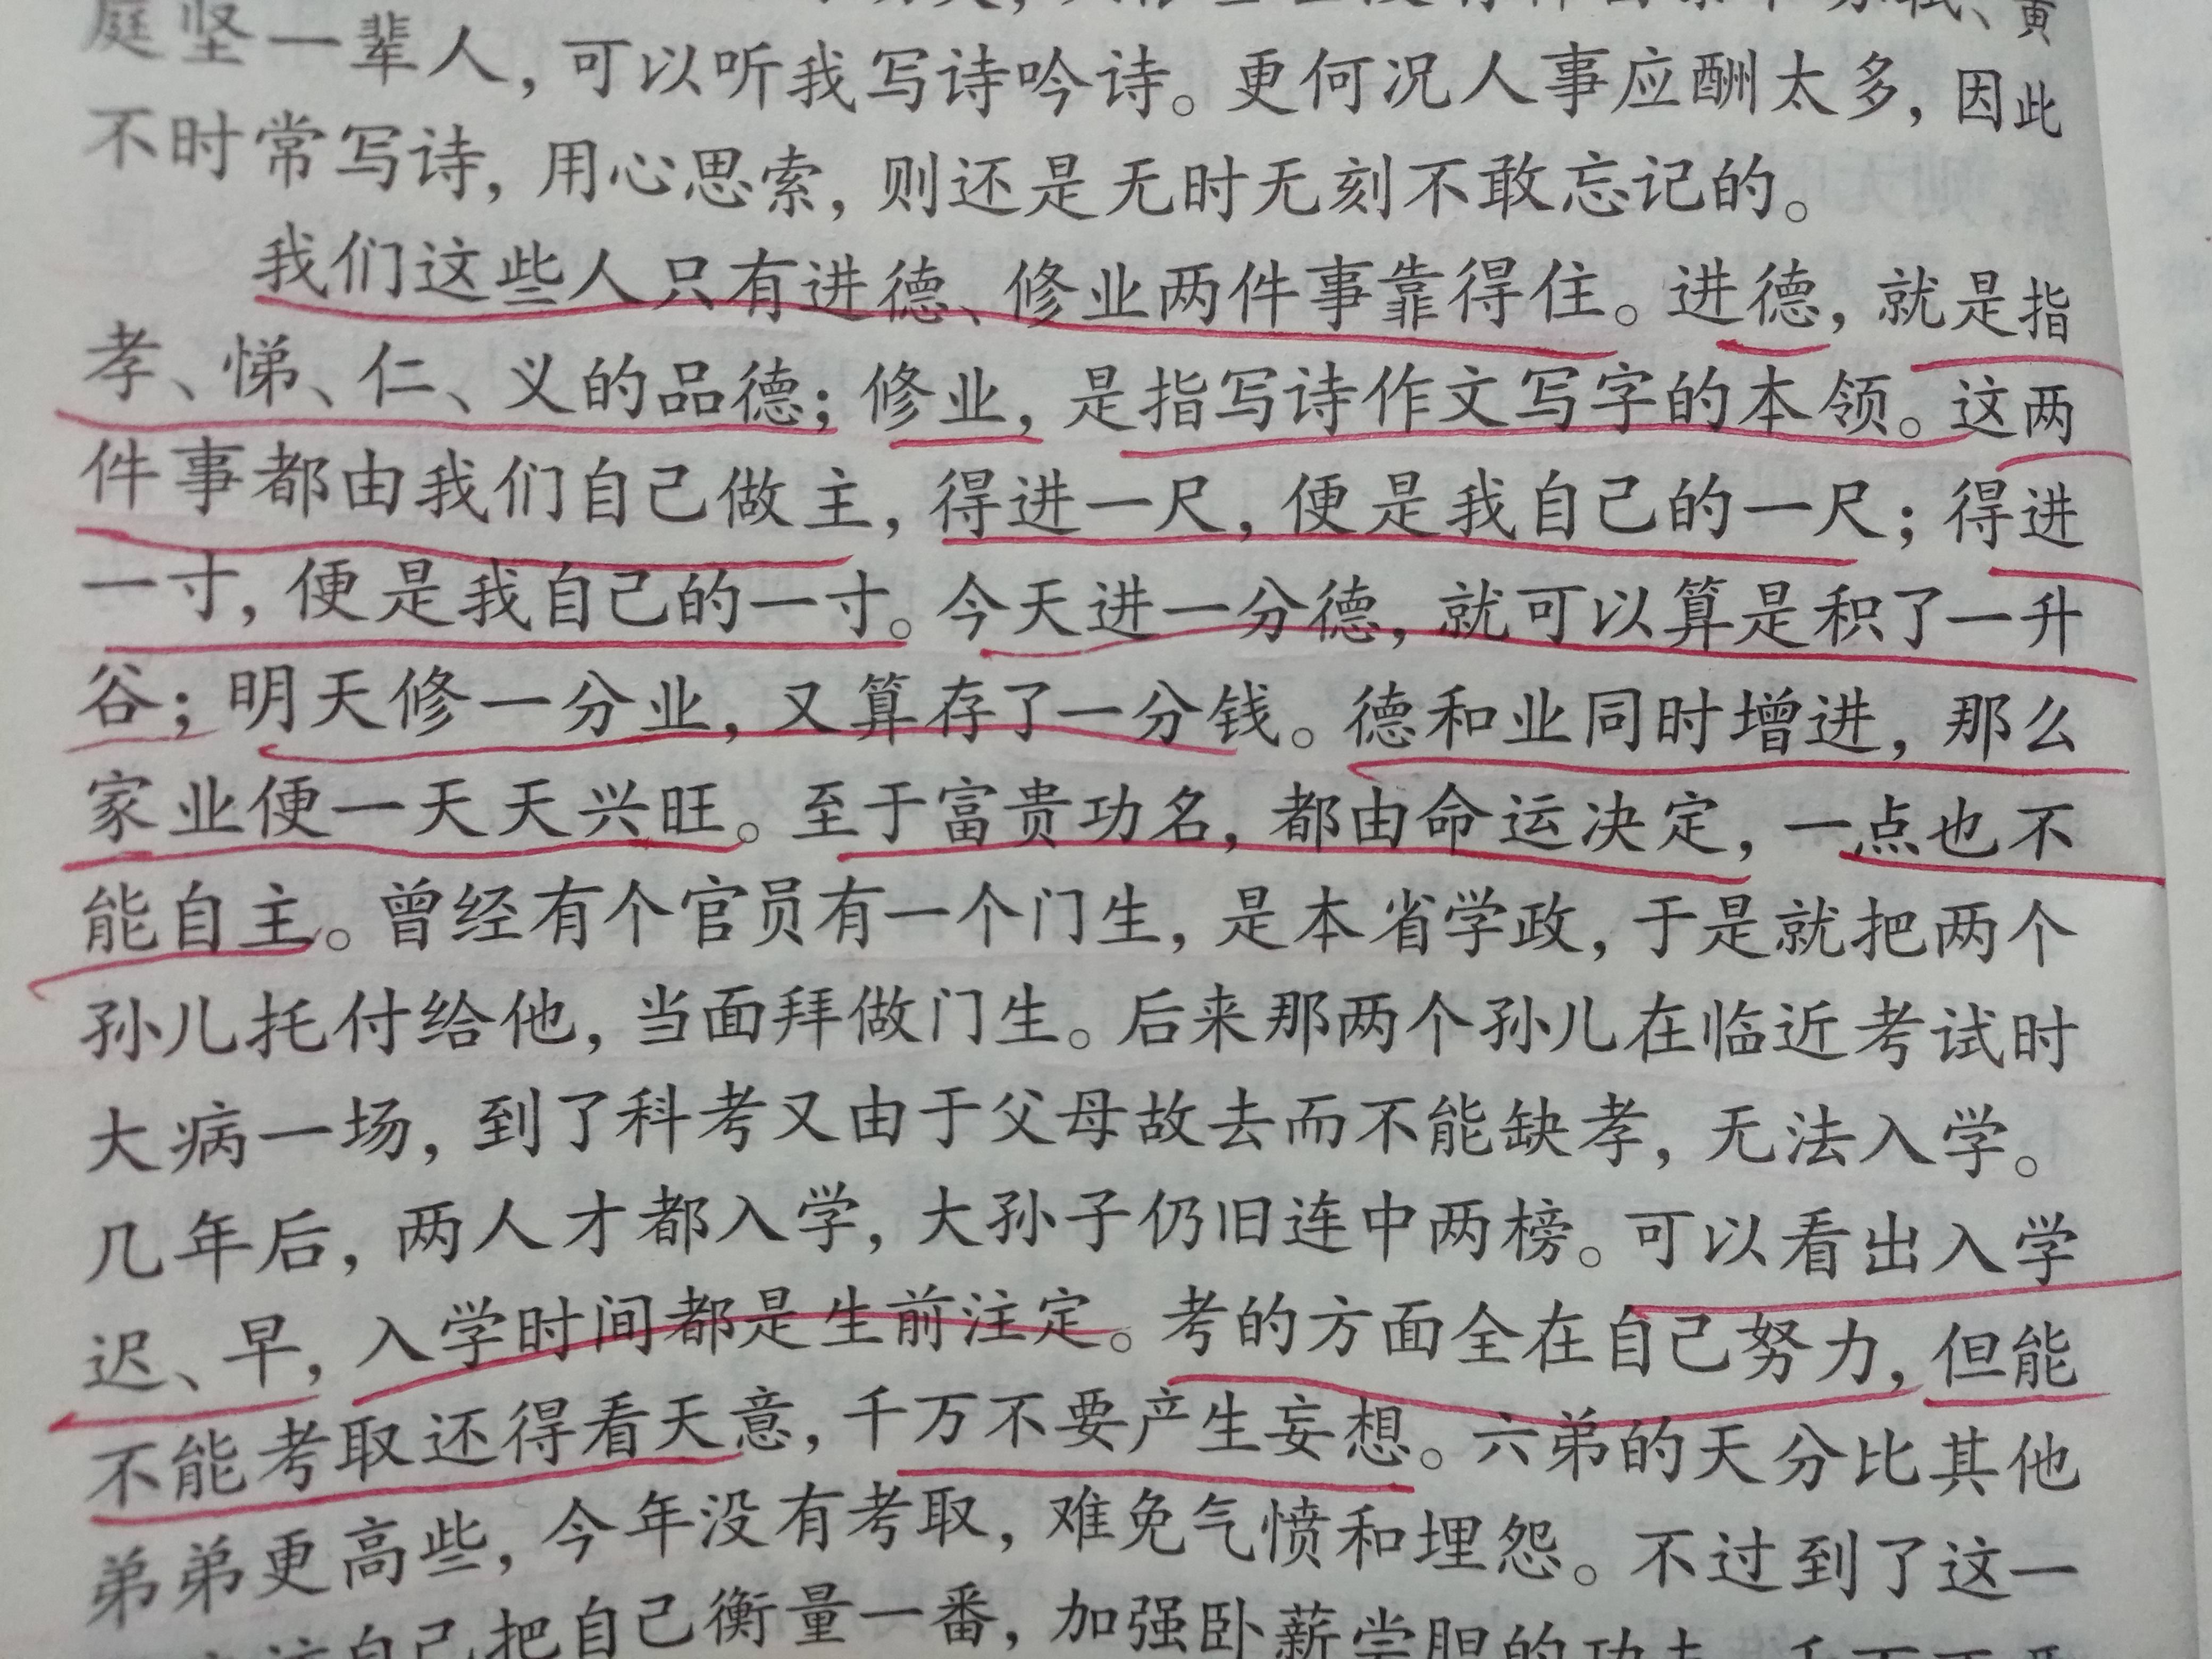 庭坚一辈人，可以听我写诗吟诗。更何况人事应酬太多，因此
不时常写诗，用心思索，则还是无时无刻不敢忘记的。
我们这些人只有进德、修业两件事靠得住。进德，就是指
孝、悌、仁、义的品德；修业，是指写诗作文写字的本领。这两
件事都由我们自己做主，得进一尺，便是我自己的一尺；得进
一寸，便是我自己的一寸。今天进一分德，就可以算是积了一升
谷；明天修一分业，又算存了一分钱。德和业同时增进，那么
家业便一天天兴旺。至于富贵功名，都由命运决定，一点也不
能自主。曾经有个官员有一个门生，是本省学政，于是就把两个
孙儿托付给他，当面拜做门生。后来那两个孙儿在临近考试时
大病一场，到了科考又由于父母故去而不能缺孝，无法入学。
几年后，两人才都入学，大孙子仍旧连中两榜。可以看出入学
迟、早，入学时间都是生前注定。考的方面全在自己努力，但能
不能考取还得看天意，千万不要产生妄想。六弟的天分比其他
弟弟更高些，今年没有考取，难免气愤和埋怨。不过到了这一
自己把自己衡量一番，加强卧薪尝胆的功夫